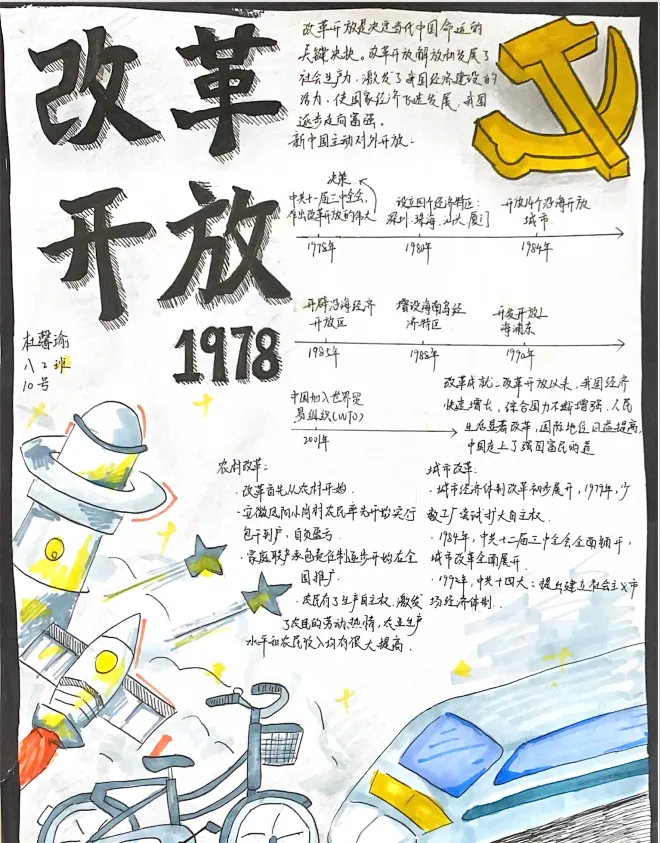 改革
开放
1978
改革开放是决定当代中国命运的
关键决抉。改革开放解放和发展了
社会生产力，激发了我国经济建设的
活力，使国家经济飞速发展，我国
逐步走向富强。
新中国主动对外开放：
决策
中共十一届三中全会
作出改革开放的伟大
1978年
设立四个经济特区：
深圳·珠海·汕头·厦门
1980年
开放14个沿海开放
城市
1984年
开辟沿海经济
开放区
1985年
增设海南岛经
济特区
1988年
开发开放上
海浦东
1990年
中国加入世界贸
易组织(WTO)
2001年
改革成就：改革开放以来，我国经济
快速增长，综合国力不断增强，人民
生活显著改革，国际地位日益提高，
中国走上了强国富民的道
杜馨瑜
八2班
10号
农村改革：
·改革首先从农村开始.
·安徽凤阳小岗村农民率先开始实行
包干到户，自负盈亏
·家庭联产承包责任制逐步开始在全
国推广.
·农民有了生产自主权，激发
了农民的劳动热情，农业生产
水平和农民收入均有很大提高.
城市改革：
·城市经济体制改革初步展开，1979年，少
数工厂尝试扩大自主权.
·1984年，中共十二届三中全会全面铺开，
城市改革全面展开.
·1992年，中共十四大：提出建立社会主义市
场经济体制.